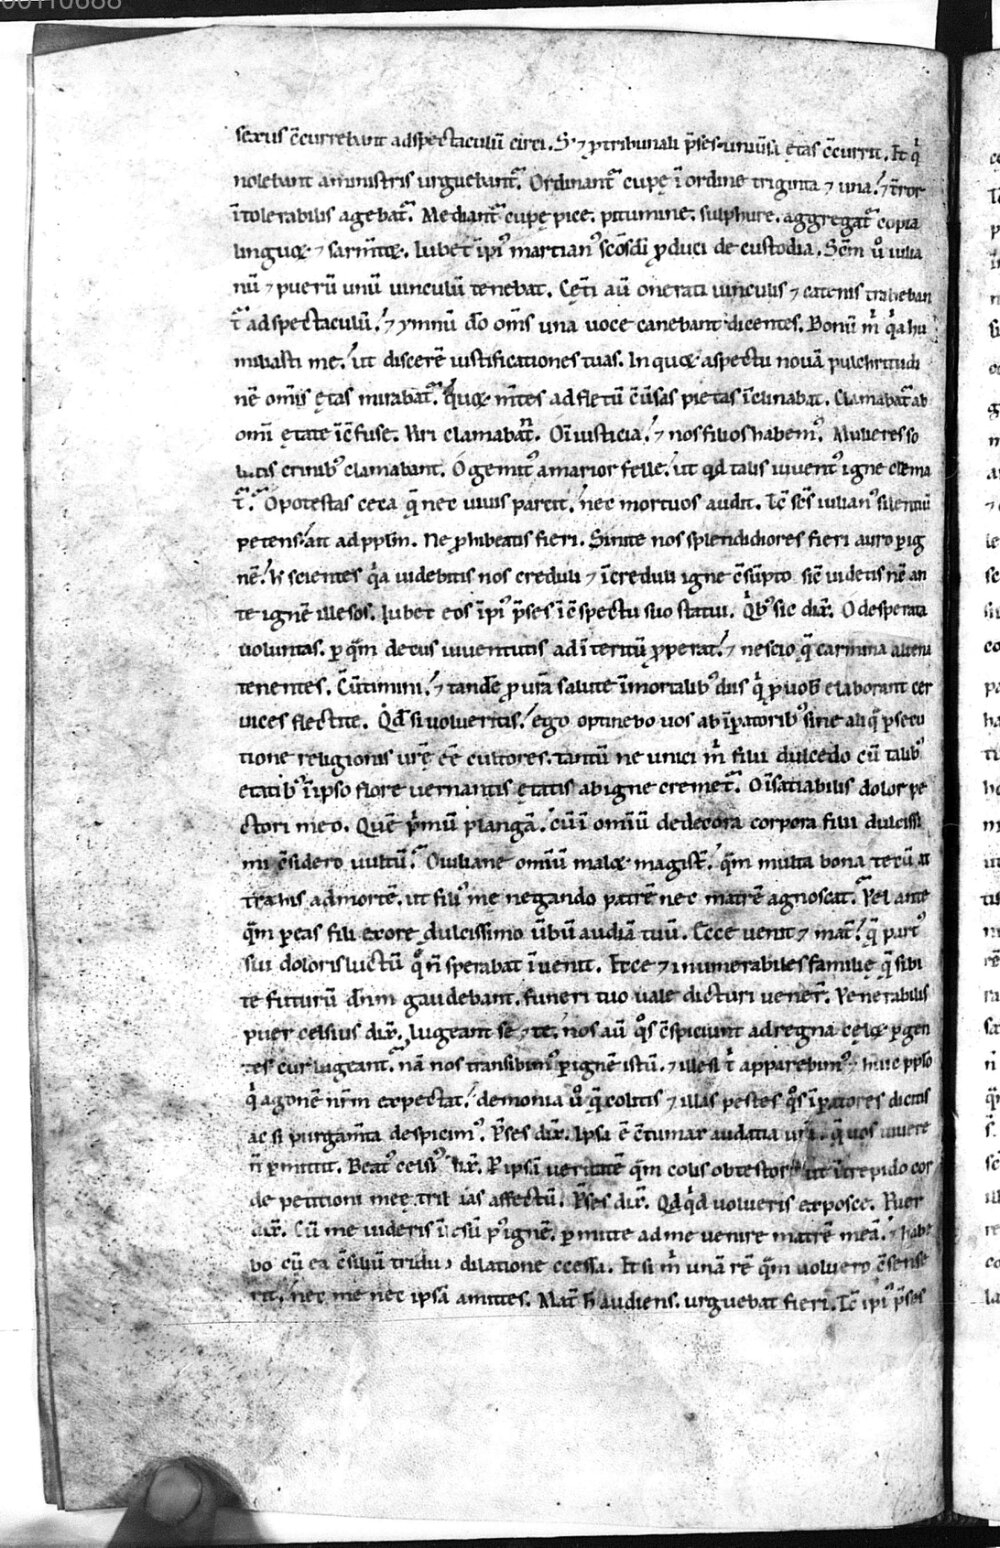 sexus c̄currebant adspectaculū circi. S; ⁊ ꝓtribunali p̄ses. uniūsa ętas c̄currit. Et q̇
nolebant aministris urguebant᷑. Ordinant᷑ cupę ī ordine triginta ⁊ una. ⁊ t̄ror
ītolerabilis agebat᷑. Mediant᷑ cupę pice. pitumine. sulphure. aggregat᷑ copia
linguæ ⁊ sarm̄tæ. Iubet īpi᷒ martian᷒ sc̄os dī ꝓduci de custodia. Sc̄m ů iulia
nū ⁊ puerū unū uinculū tenebat. Cęt̄i aū onerati uinculis ⁊ catenis traheban
t᷑ ad spectaculū. ⁊ ymnū dō om̄s una uoce canebant dicentes. Bonū m̄ q̇a hu
miliasti me. ut discerē iustificationes tuas. In quæ aspectu nouā pulchritudi
nē om̄is ętas mirabat᷑. quæ m̄tes ad fletū c̄ūsas pietas īclinabat. Clamabat᷑ ab
omī ętate īc̄fuse. Viri clamabāt. O īiusticia. ⁊ nos filios habem᷒. Mulieres so
lutis crinib᷒ clamabant. O gemit᷒ amarior felle. ut qd̄ talis iuuent᷒ igne crema
t᷑. O potestas ceca q̄ nec uiuis parcit. nec mortuos audit. Tc̄ sc̄s iulian᷒ silentiū
petens. ait ad pplm̄. Ne ꝓhibeatis fieri. Sinite nos splendidiores fieri auro ꝑ ig
nē. h̄ scientes q̇a uidebitis nos creduli ⁊ īcreduli igne c̄sūpto sic̄ uidetis nē an
te ignē illesos. Iubet eos īpi᷒ p̄ses ī c̄spectu suo statui. Q̇b᷒ sic dix̄. O desperata
uoluntas. ꝑ q̄m decus iuuentutis ad īteritū ꝓperat. ⁊ nescio q̄ carmina
tenentes. C̄uertimini. ⁊ tandē ꝓ ur̄a salute īmortalib᷒ diis q̇ ꝓ uob̄ elaborant cer
uices flectite. Qd̄ si uolueritis. ego optinebo uos ab īꝑatorib᷒ sine aliq̄ ꝑsecu
tione religionis ur̄ę ēē cultores. tantū ne unici m̄ filii dulcedo cū talib᷒
etatib᷒ ī ipso flore uernantis ętatis ab igne cremet᷑. O īsatiabilis dolor pe
ctori meo. Quē p̄mū plangā. cū ī omiū dedecora corpora filii dulcissi
mi c̄sidero uultū. O iuliane omiū malæ magist̄. q̄m multa bona tecū at
trahis ad mortē. ut fili᷒ me negando patrē nec matrē agnoscat. Vel ante
q̄m ꝑeas fili ex ore dulcissimo ūbū audiā tuū. Ecce uenit ⁊ mat̄. q̄ part᷒
sui doloris luctū q̊ n̄ sperabat īuenit. Ecce ⁊ inumerabiles familię q̄ sibi
te futurū dn̄m gaudebant. funeri tuo uale dicturi uener̄. Venerabilis
puer celsius dix̄. Lugeant se ⁊ te. nos aū q̊s c̄spiciunt ad regna cęlæ ꝑgen
tes cur lugeant. nā nos transibim᷒ ꝑ ignē istū. ⁊ illesi t̄ apparebim᷒ ⁊ huic pplo
q̇ agonē nr̄m expectat. demonia ů q̄ colitis ⁊ illas pestes q̊s īꝑatores dicitis
ac si purgam̄ta despicim᷒. P̄ses dix̄. Ipsa ē c̄tumax audatia ur̄a. q̄ uos uiuere
n̄ ꝑmittit. Beat᷒ celsi᷒ dix̄. P ipsā ueritatē q̄m colis obtestor ut ītrepido cor
de petitioni meę tribuas affectū. P̄ses dix̄. Qd̄q̇d uolueris exposce. Puer
dix̄. Cū me uideris īlesū p᷒ ignē. ꝑmitte ad me uenire matrē meā. ⁊ habe
bo cū ea c̄siliū tridui dilatione ccessa. Et si m̄ unā rē q̄m uoluero c̄sense
rit, nec me nec ipsā amittes. Mat̄ h̄ audiens. urguebat fieri. Tc̄ ipi᷒ p̄ses